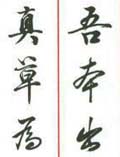 吾本出
真草為